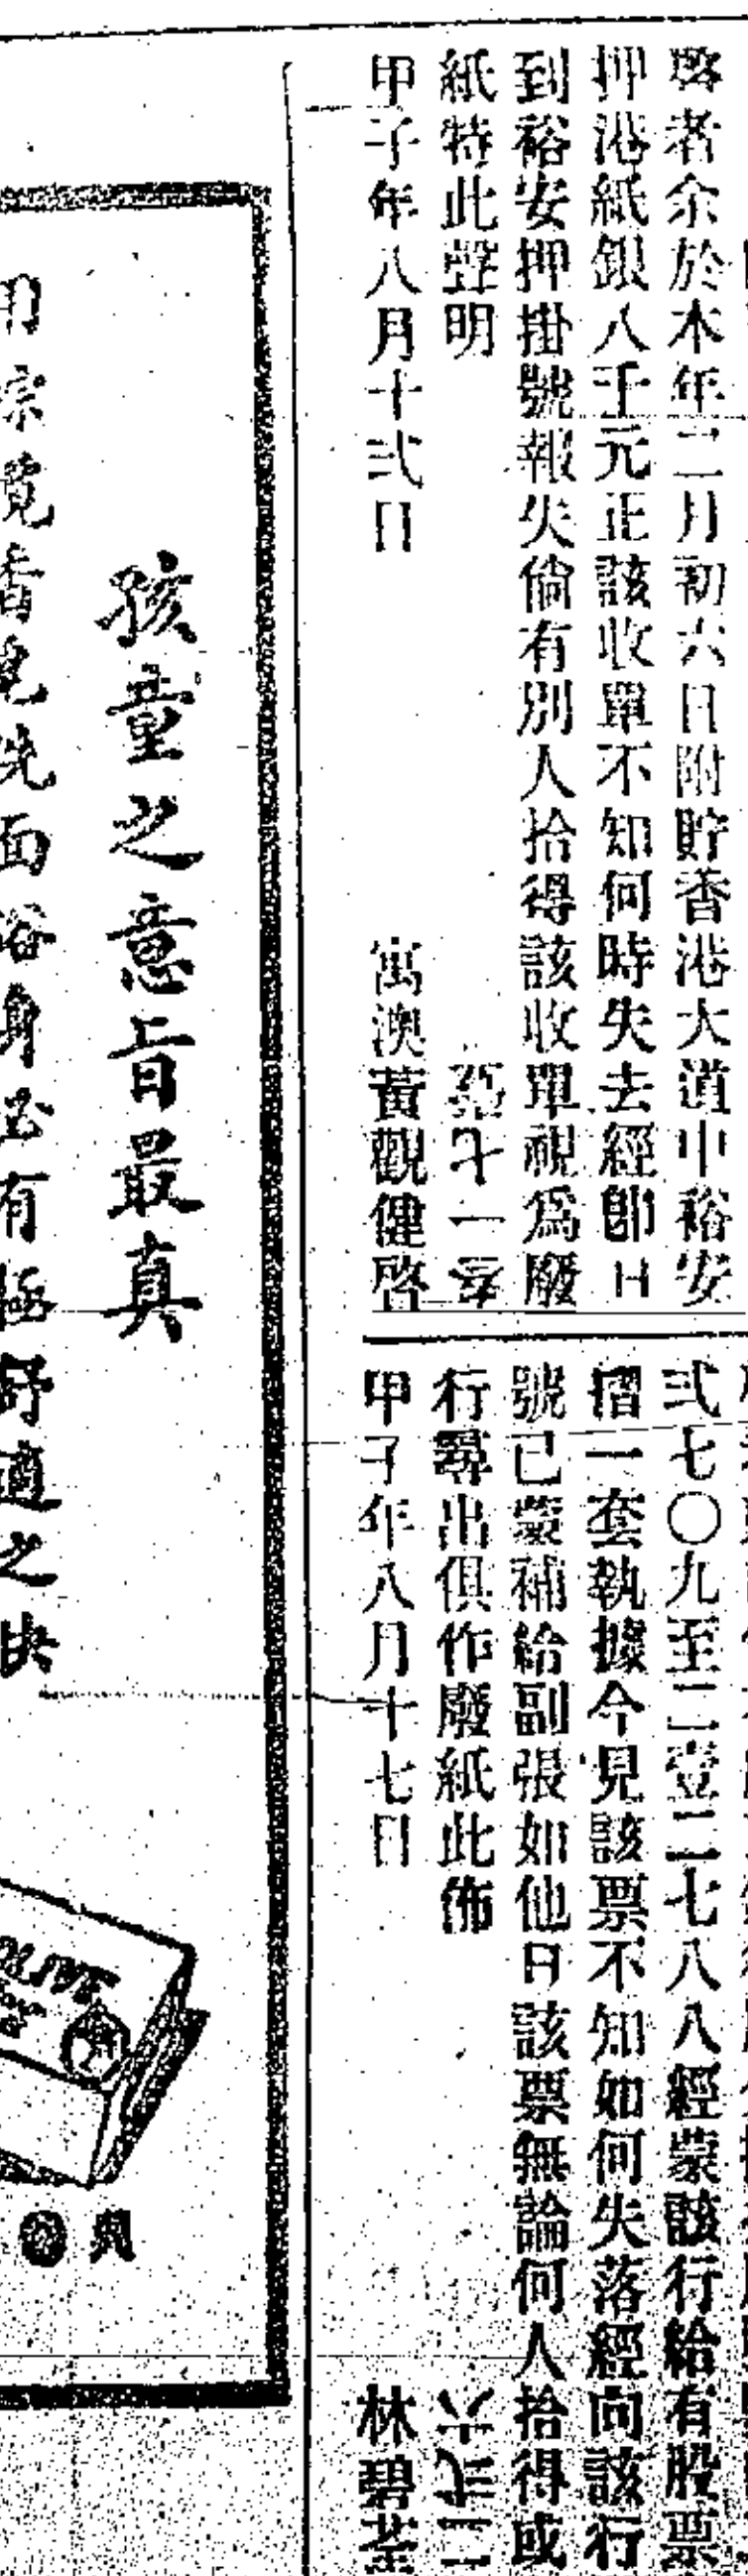 啓者余於本年二月初六日附貯香港大道中裕安
押港紙銀八千元正該收單不知何時失去經卽日
到裕安押掛號報失倘有別人拾得該收單視爲廢
紙特此聲明
甲子年八月十弍日
寓澳黃觀健啓
弍七〇九至二壹二七八八經蒙該行給有股票
摺一套執據今見該票不知如何失落經向該行
號已蒙補給副張如他日該票無論何人拾得或
行尋出俱作廢紙此佈
甲子年八月十七日
林碧
孩童之意旨最真
洗面浴身必有極舒適之快